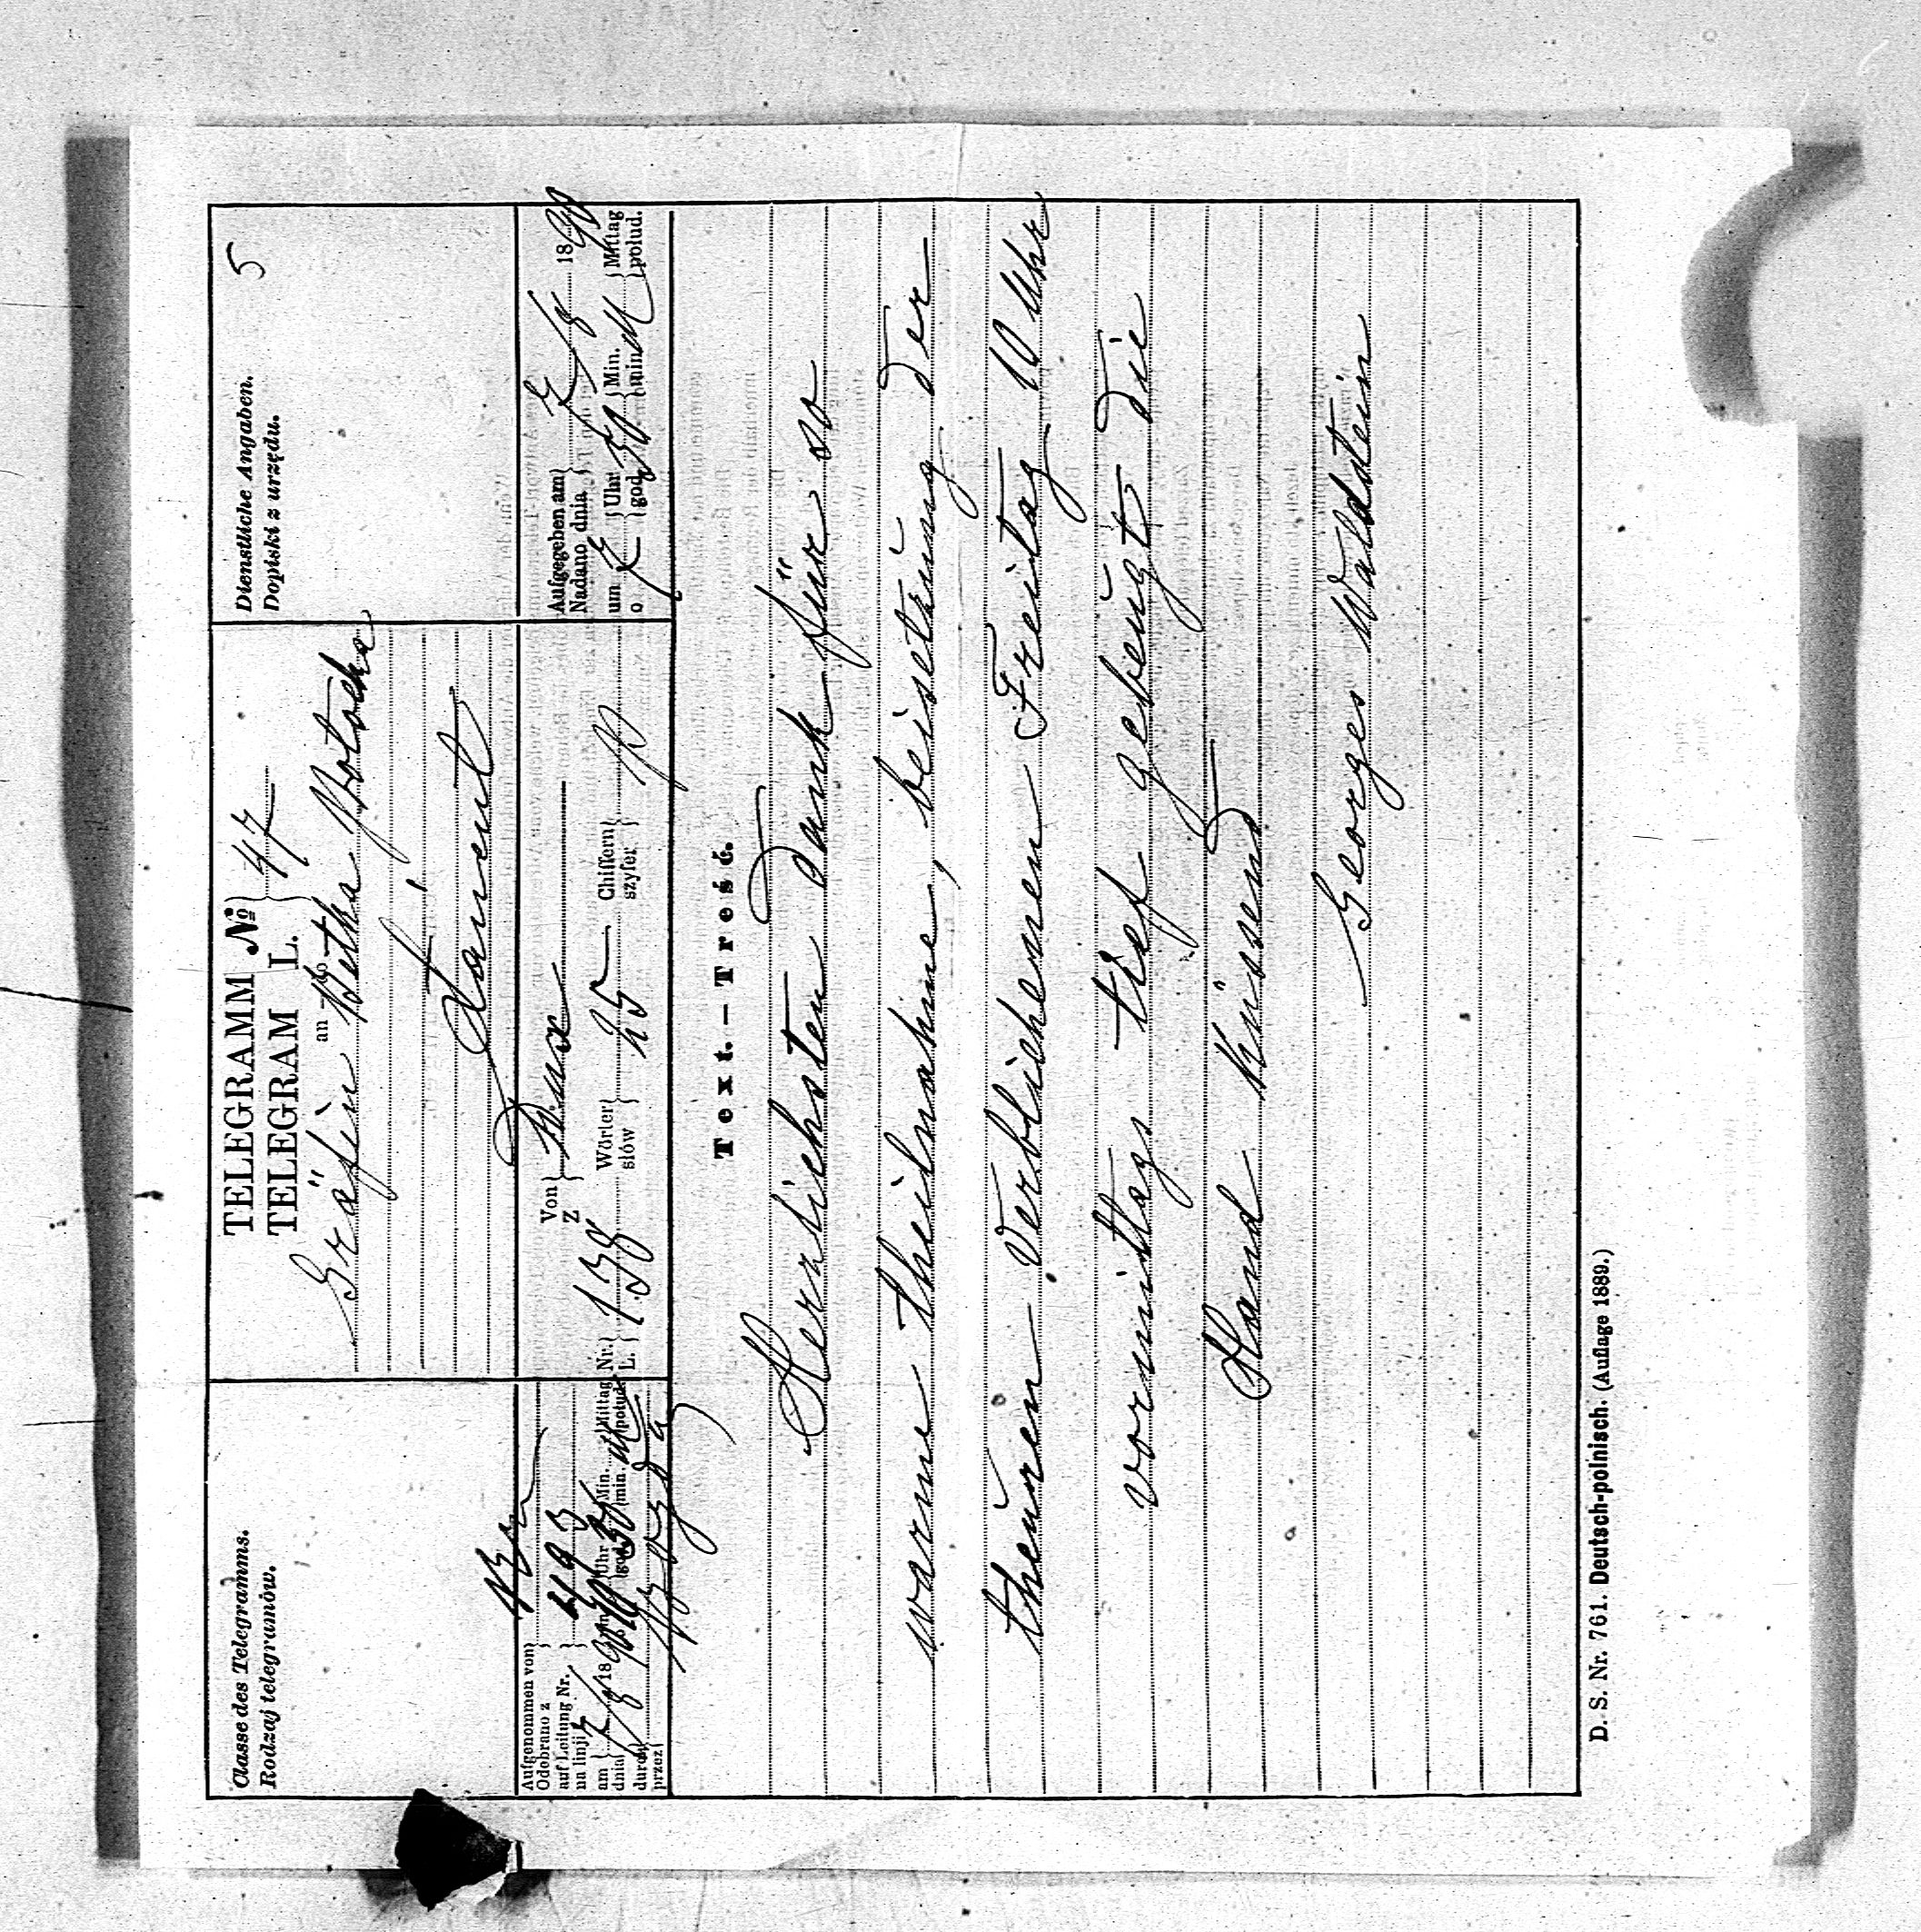 Classe des Telegramms.
Rodzaj telegramów.
TELEGRAMM №
TELEGRAM L. 47
an - do
Gräfin Betka Potocka
Łańcut
Dienstliche Angaben.
Dopiski z urzędu.
5
Aufgenommen von
Odebrano z
auf Leitung Nr.
na linji 493
am
dnia 7/8 1890 um Uhr Min. Mittag
god. min. połud.
durch
przez
Nr.
L. 138
Von
Z Dux
Wörter
słów 25
Chiffern
szyfer
Aufgegeben am
Nadano dnia 7/8 1890
um Uhr 50 Min. Mittag
o god. min. połud.
Text. – Treść.
Herzlichsten Dank für so
warme theilnahme, beisetzung der
theuren Verblichenen Freitag 10 Uhr
vormittags tief gebeugt die
Hand Küssend
Georges Waldstein
D. S. Nr. 761. Deutsch-polnisch. (Auflage 1889.)